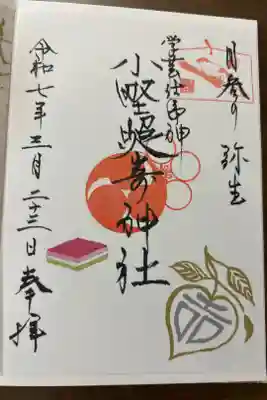 月参り 弥生
学芸仕事神
小野照崎神社
令和七年三月二十三日 奉拝